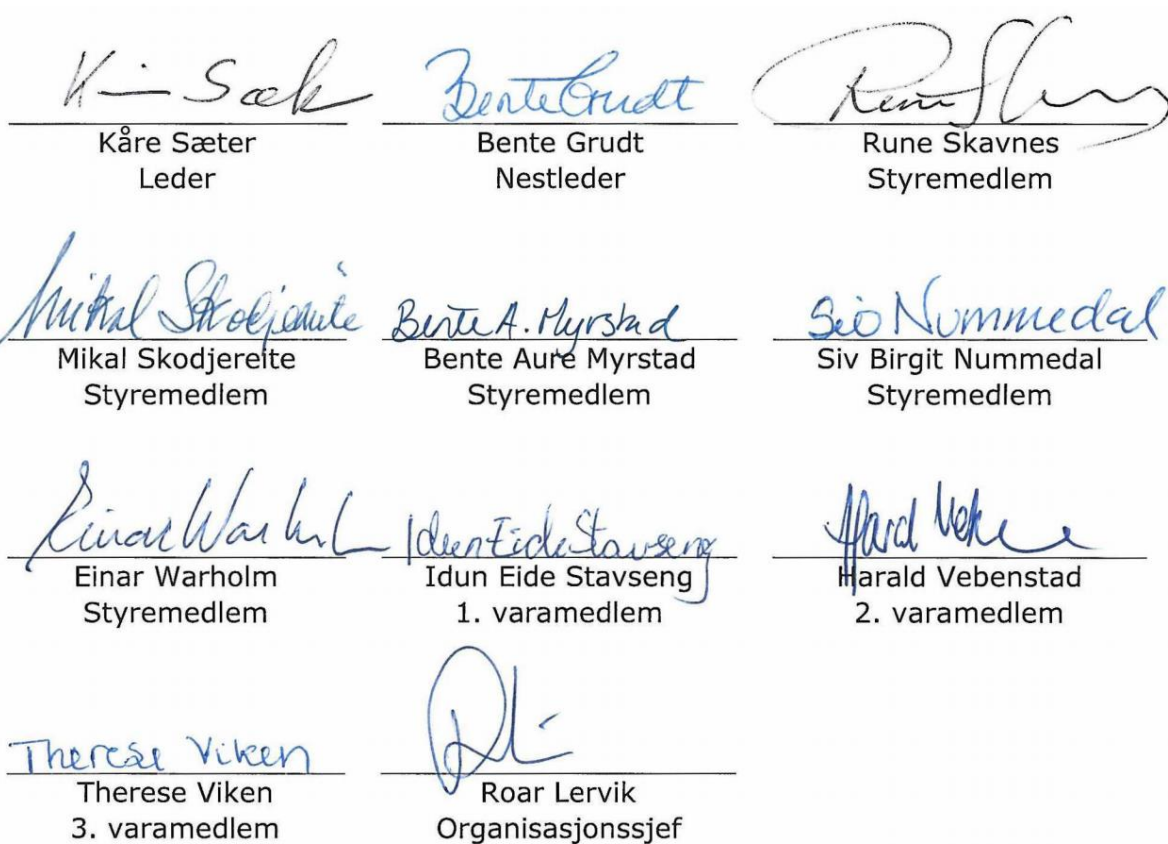 Kåre Sæter
Leder
Bente Grudt
Bente Grudt
Nestleder
Rune Skavnes
Styremedlem
Mikal Skodjereite
Mikal Skodjereite
Styremedlem
Bente A. Myrstad
Bente Aure Myrstad
Styremedlem
Siv Nummedal
Siv Birgit Nummedal
Styremedlem
Einar Warholm
Styremedlem
Idun Eide Stavseng
Idun Eide Stavseng
1. varamedlem
Harald Vebenstad
2. varamedlem
Therese Viken
Therese Viken
3. varamedlem
Roar Lervik
Organisasjonssjef